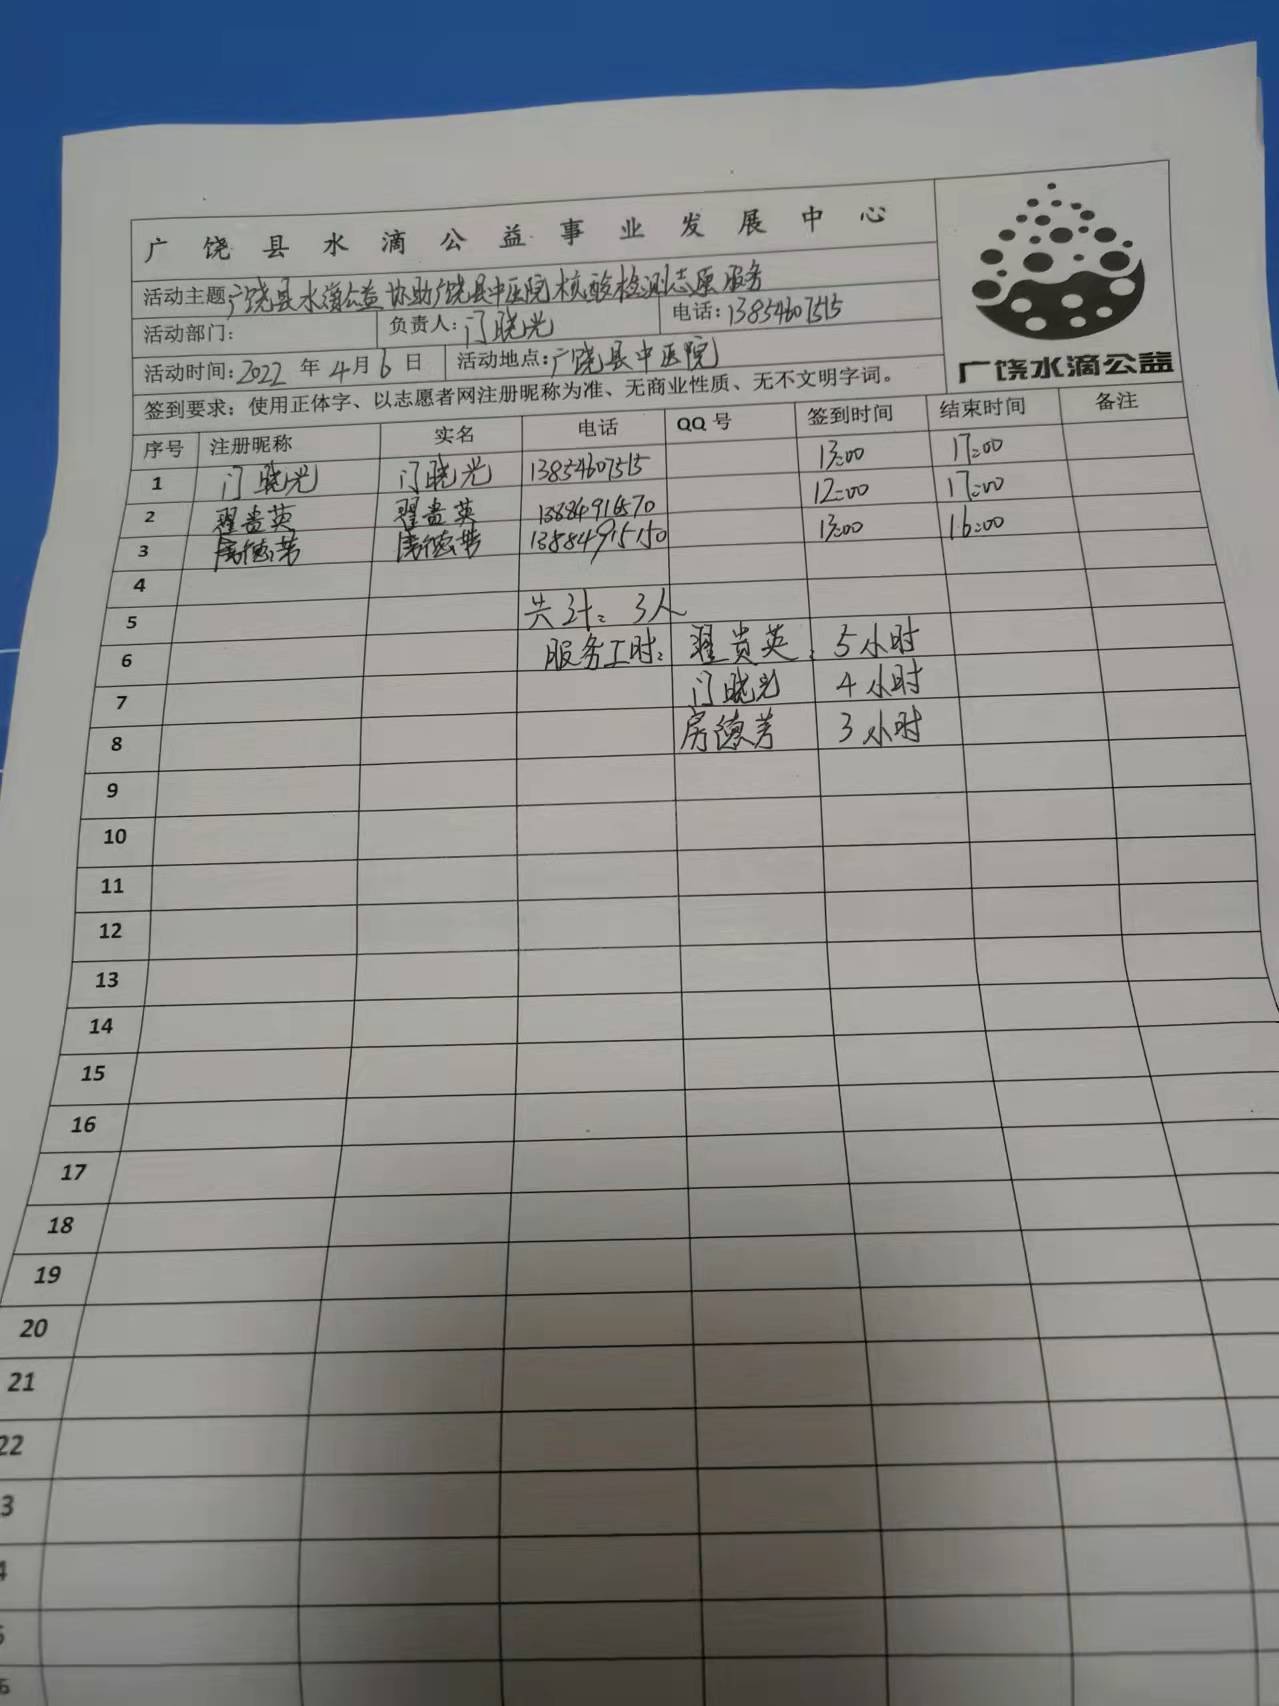 广饶县水滴公益事业发展中心
活动主题广饶县水滴公益协助广饶县中医院核酸检测志愿服务
活动部门: 负责人:门晓光 电话:13854607515
活动时间:2022年4月6日 活动地点:广饶县中医院
广饶水滴公益
签到要求:使用正体字、以志愿者网注册昵称为准、无商业性质、无不文明字词。
序号 注册昵称 实名 电话 QQ号 签到时间 结束时间 备注
1 门晓光 门晓光 13854607515 13:00 17:00
2 翟贵英 翟贵英 12:00 17:00
3 房德芳 房德芳 13884915150 13:00 16:00
4
5 共计:3人
6 服务工时:翟贵英:5小时
7 门晓光 4小时
8 房德芳 3小时
9
10
11
12
13
14
15
16
17
18
19
20
21
22
3
4
5
6